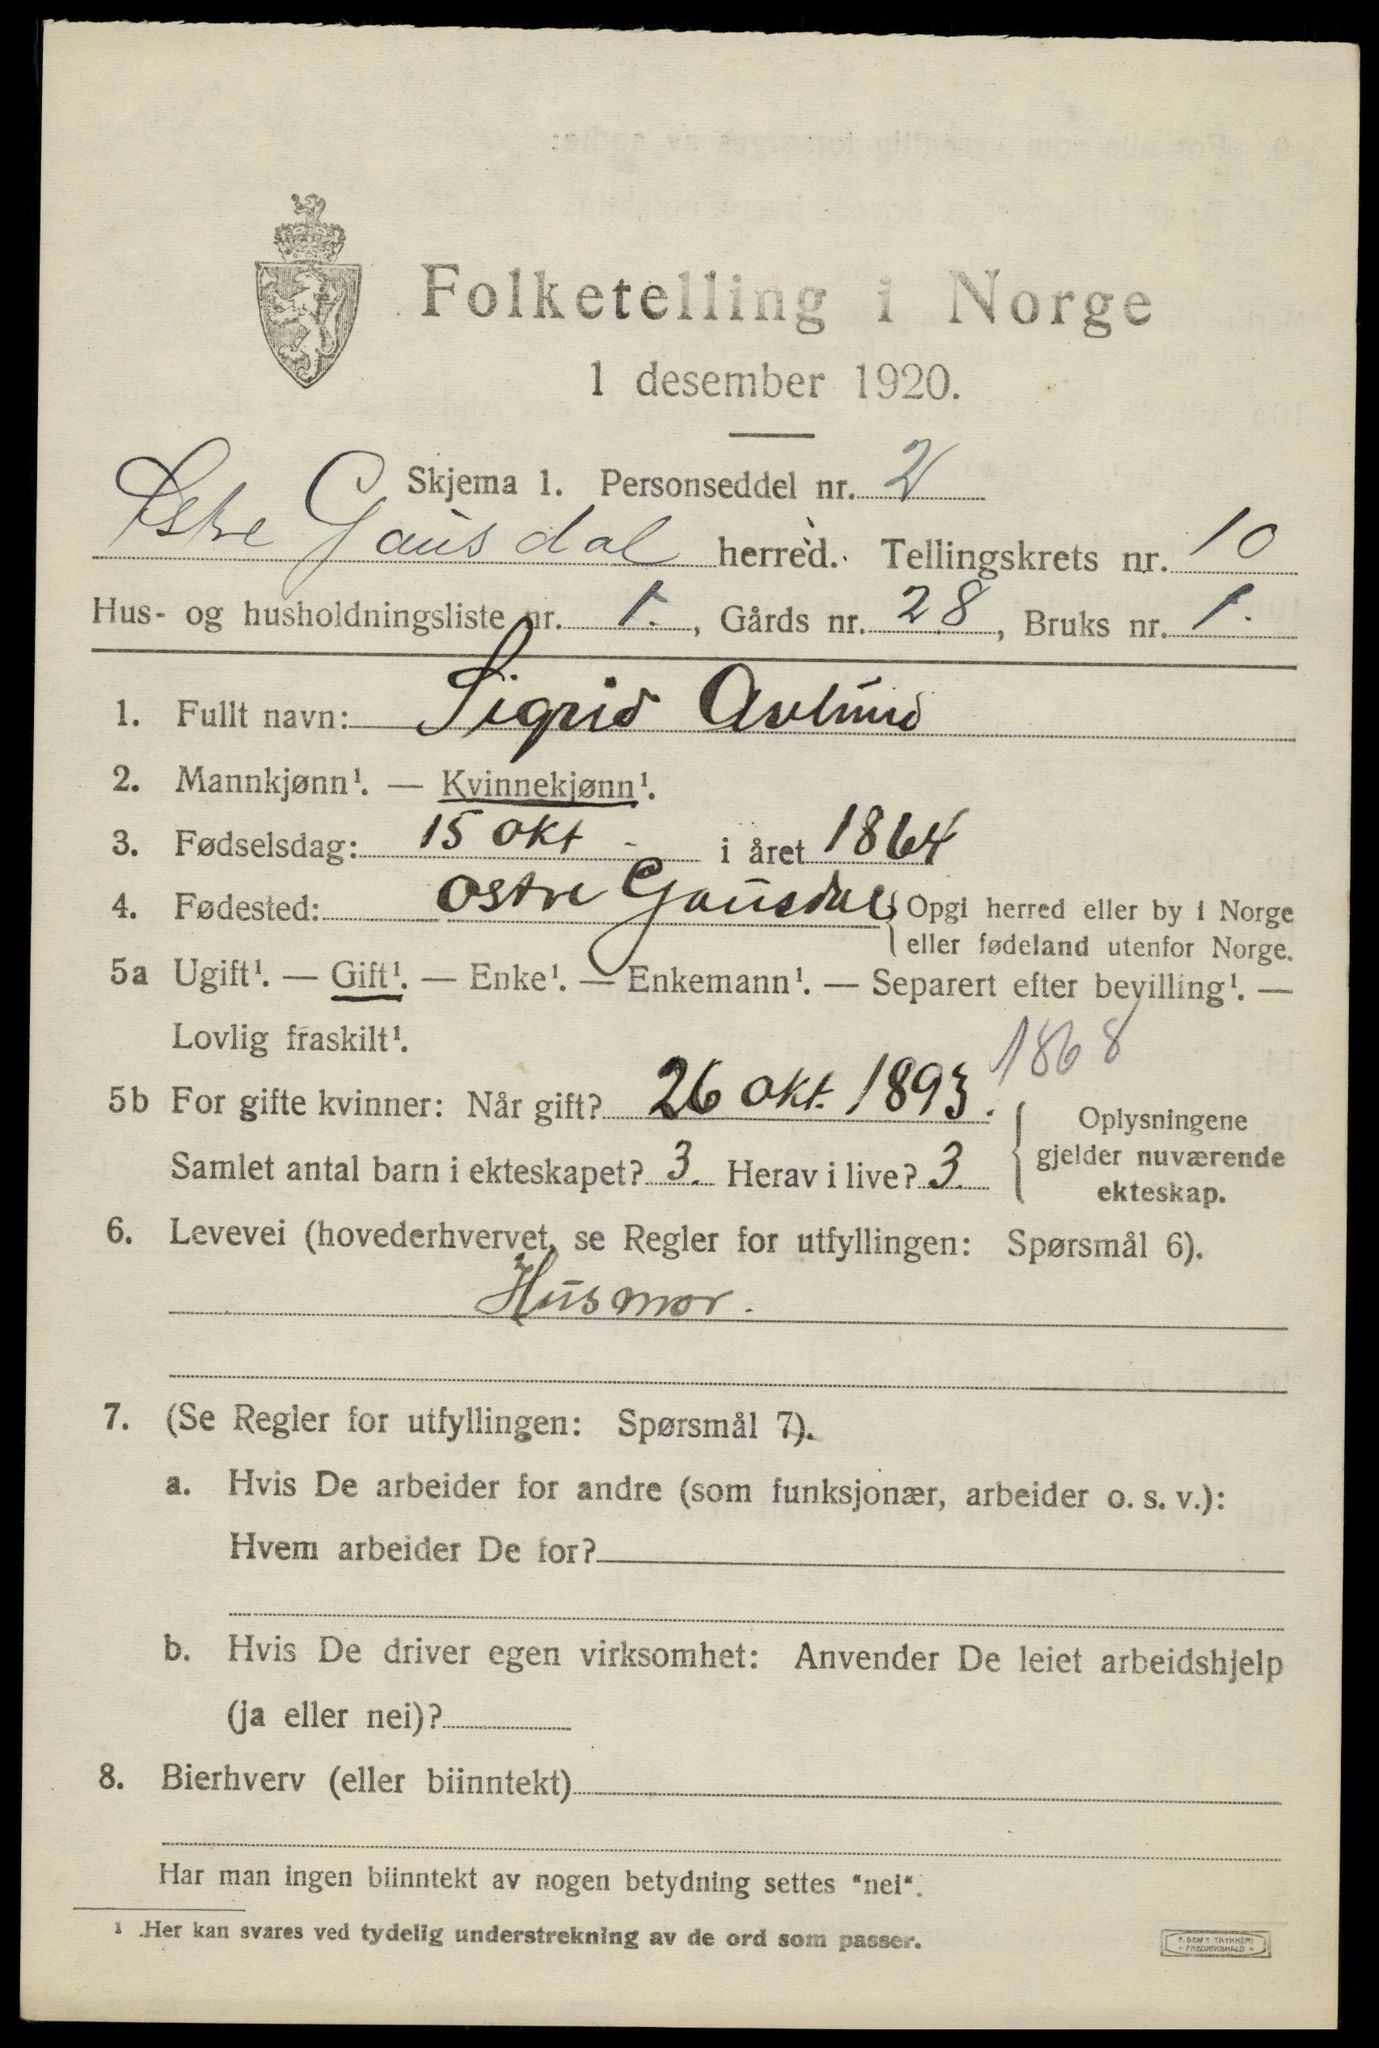 Folketelling i Norge
1 desember 1920.
Skjema 1. Personseddel nr. 2
Østre Gausdal herred. Tellingskrets nr. 10
Hus- og husholdningsliste nr. 1., Gårds nr. 28, Bruks nr. 1.
1. Fullt navn: Sigrid Avlund
2. Mannkjønn¹. — Kvinnekjønn¹.
3. Fødselsdag: 15 okt - i året 1864
4. Fødested: Østre Gausdal { Opgi herred eller by i Norge
eller fødeland utenfor Norge.
5a Ugift¹. — Gift¹. — Enke¹. — Enkemann¹. — Separert efter bevilling¹. —
Lovlig fraskilt¹.
1868
5b For gifte kvinner: Når gift? 26 okt. 1893.
Samlet antal barn i ekteskapet? 3. Herav i live? 3.
{ Oplysningene
gjelder nuværende
ekteskap.
6. Levevei (hovederhvervet, se Regler for utfyllingen: Spørsmål 6).
Husmor.
7. (Se Regler for utfyllingen: Spørsmål 7).
a. Hvis De arbeider for andre (som funksjonær, arbeider o. s. v.):
Hvem arbeider De for?
b. Hvis De driver egen virksomhet: Anvender De leiet arbeidshjelp
(ja eller nei)?
8. Bierhverv (eller biinntekt)
Har man ingen biinntekt av nogen betydning settes "nei".
¹ Her kan svares ved tydelig understrekning av de ord som passer.
TRYKKERI
FREDRIKSHALD